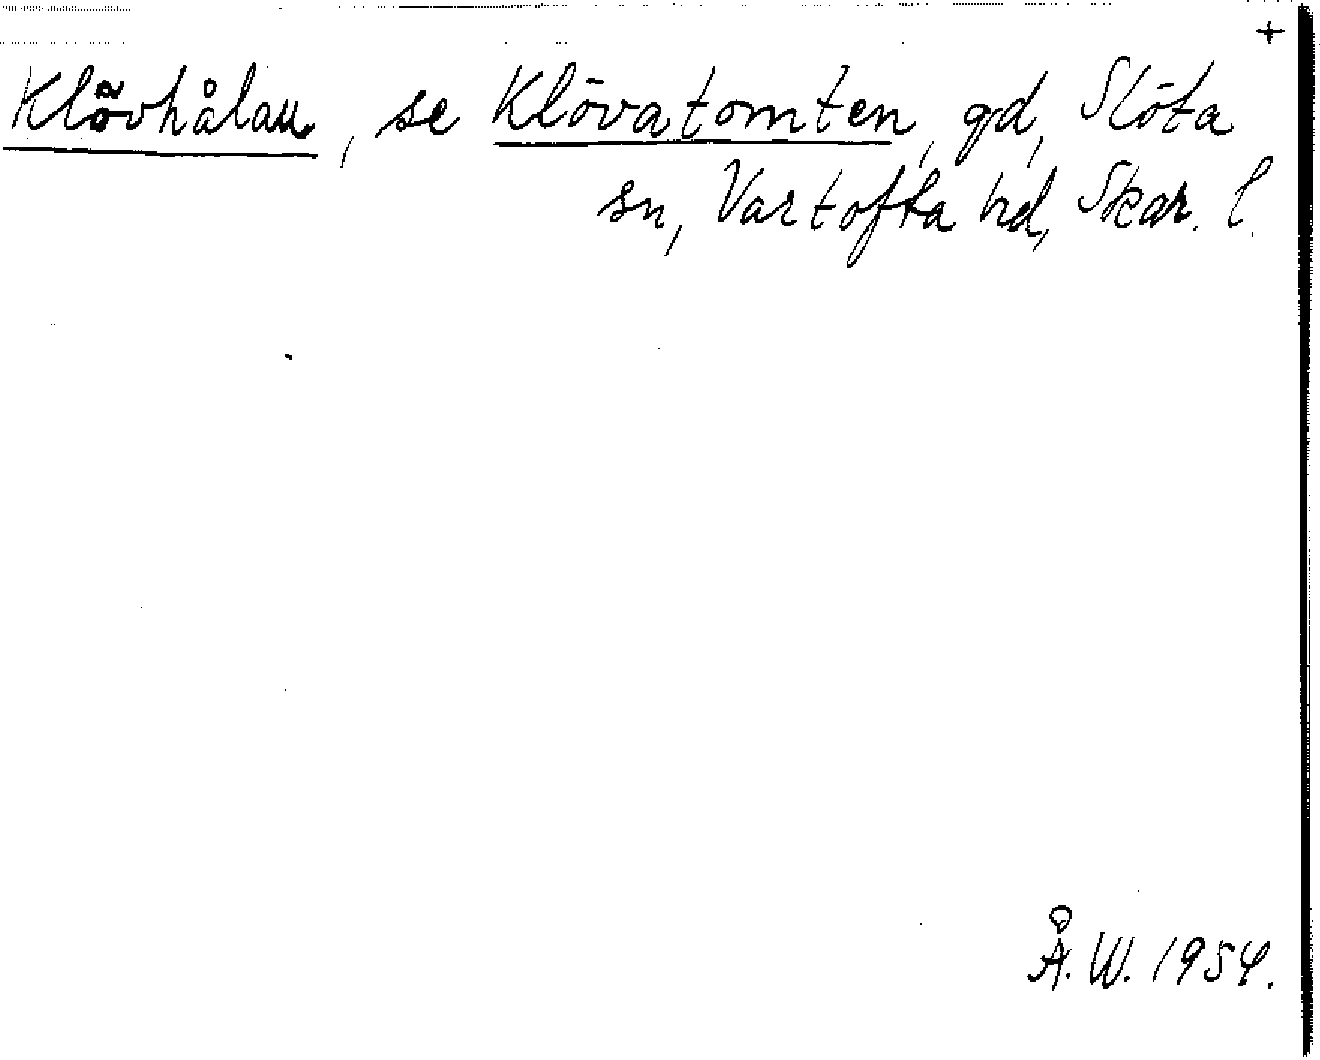 +
Klövhålan, se Klövatomten, gd, Slöta
sn, Vartofta hd, Skar. l.
Å.W. 1954.